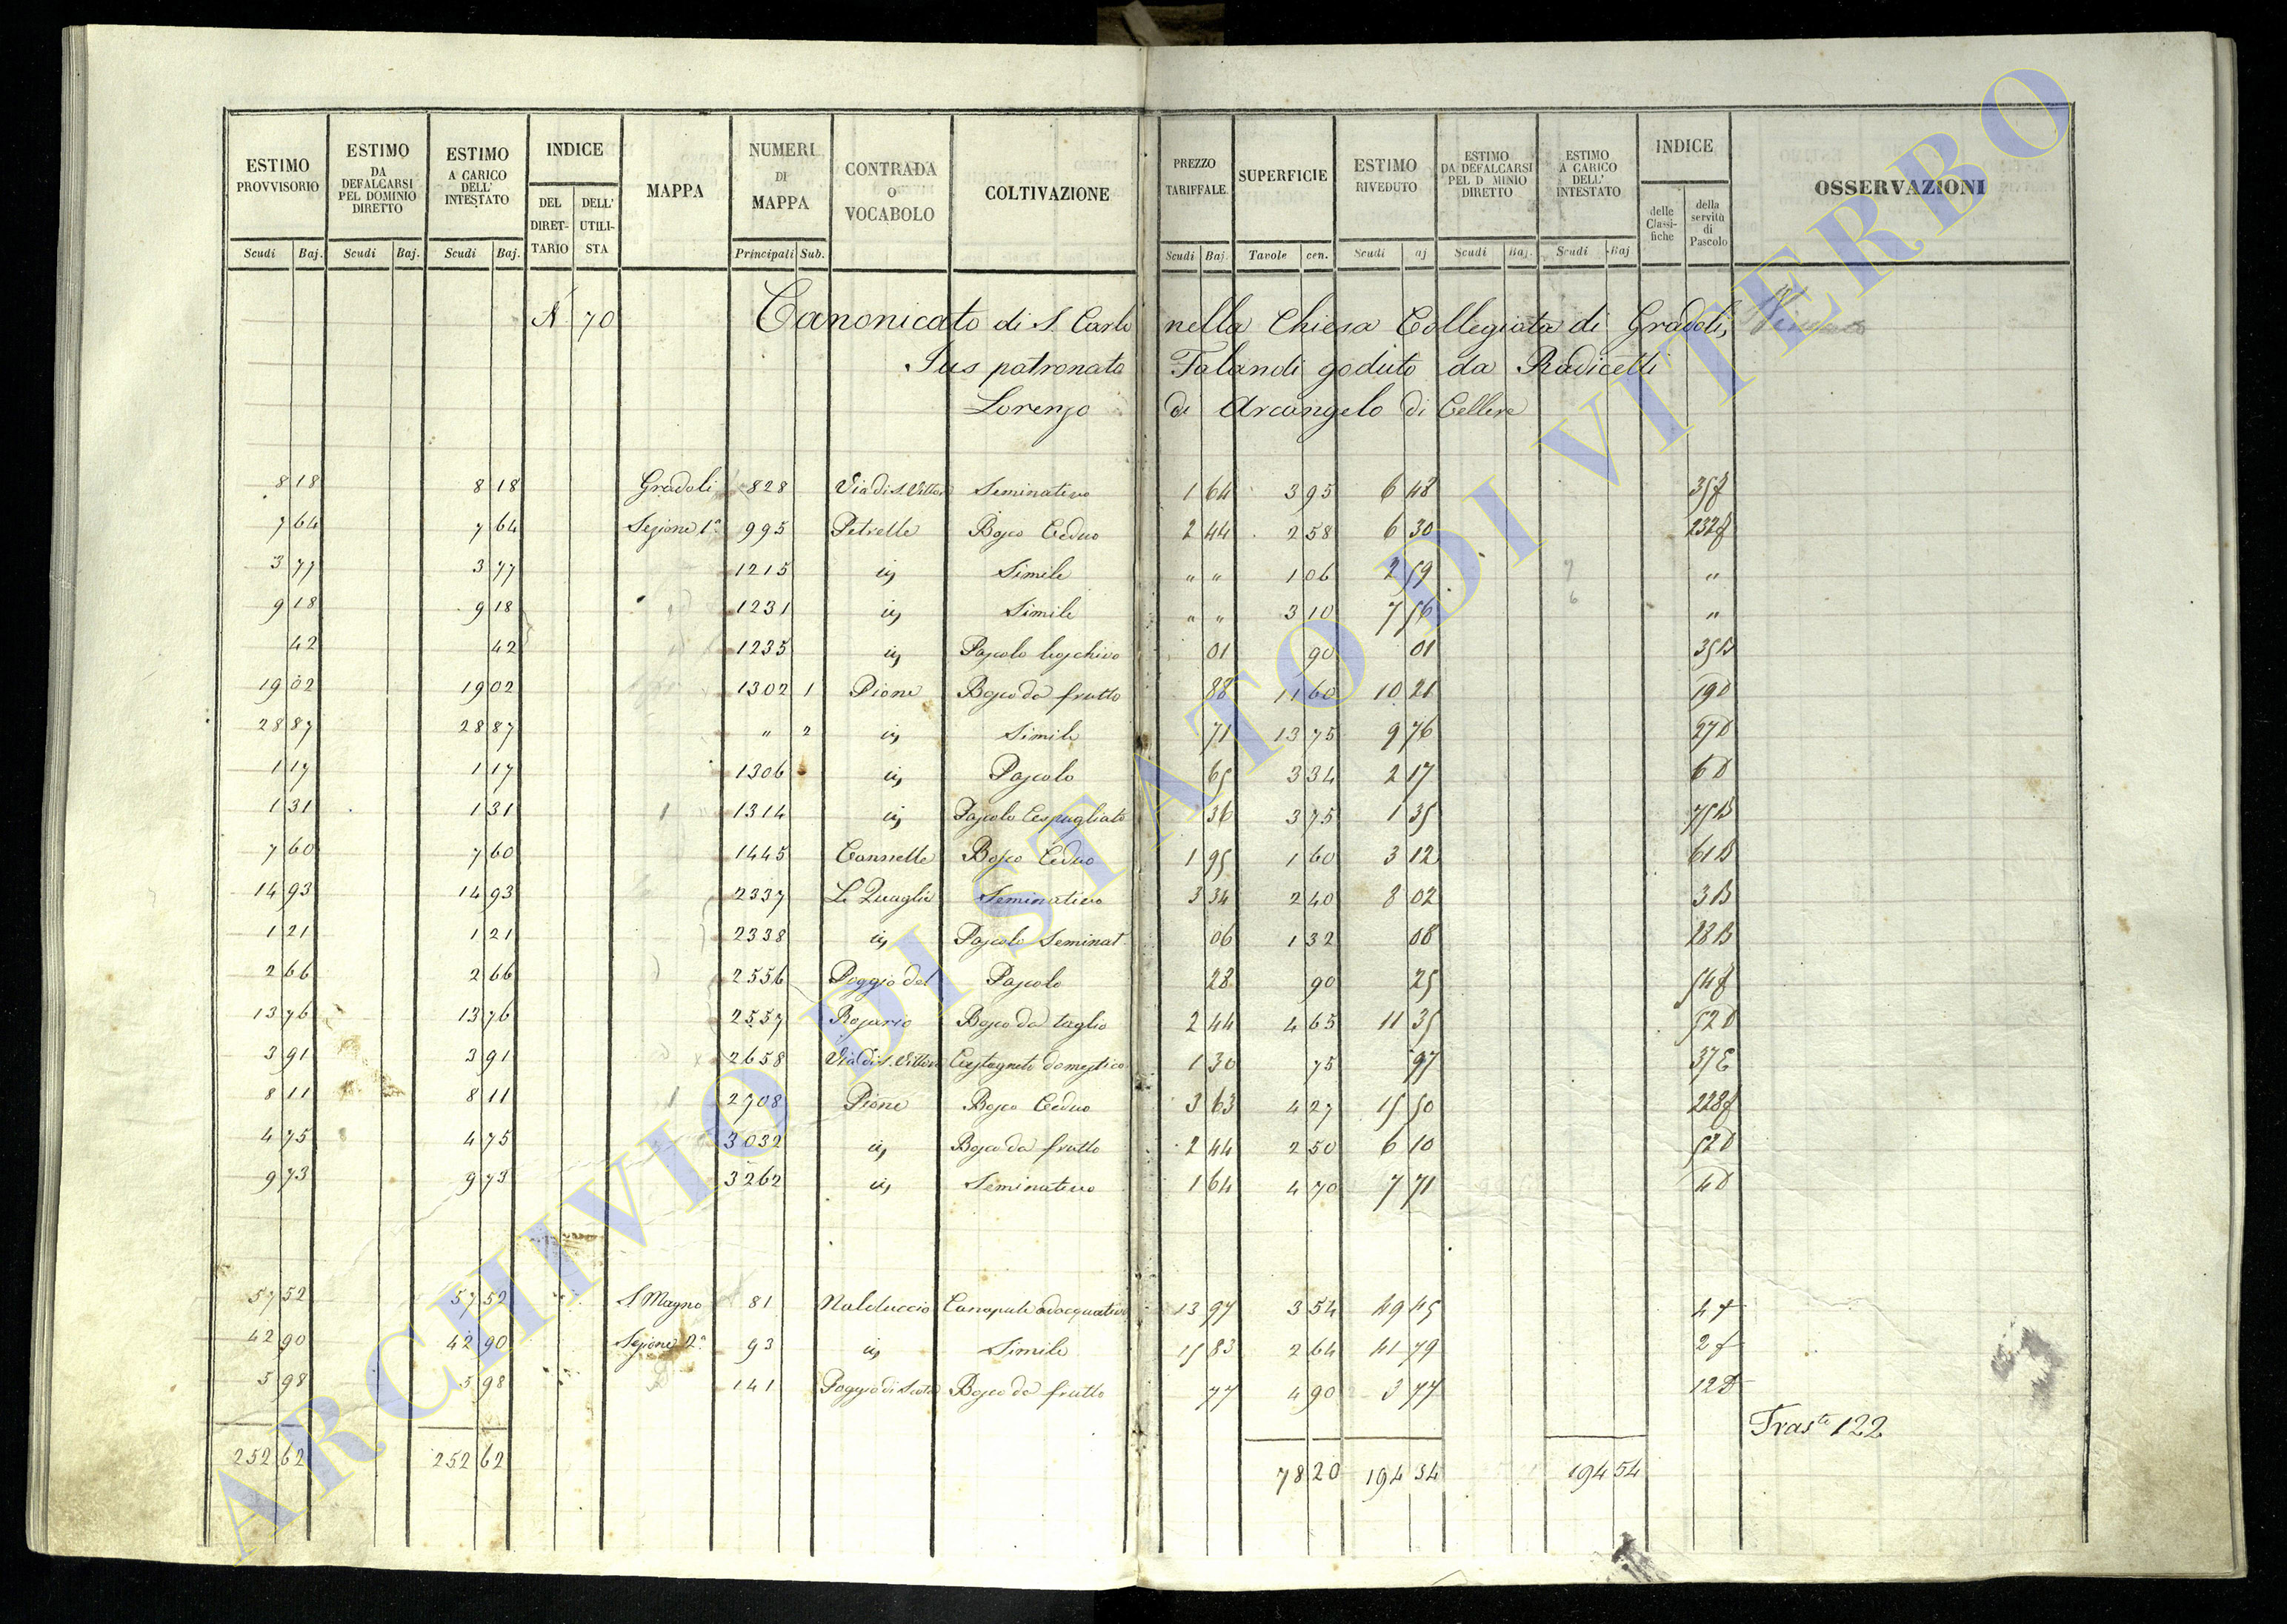 ESTIMO PROVVISORIO | ESTIMO DA DEFALCARSI PEL DOMINIO DIRETTO | ESTIMO A CARICO DELL' INTESTATO | INDICE | MAPPA | NUMERI DI MAPPA | CONTRADA O VOCABOLO | COLTIVAZIONE | PREZZO TARIFFALE. | SUPERFICIE | ESTIMO RIVEDUTO | ESTIMO DA DEFALCARSI PEL D MINIO DIRETTO | ESTIMO A CARICO DELL' INTESTATO | INDICE | OSSERVAZIONI
DEL DIRETTARIO | DELL' UTILISTA | delle Classifiche | della servitù di Pascolo
Scudi | Baj. | Scudi | Baj. | Scudi | Baj. | Principali | Sub. | Scudi | Baj. | Tavole | cen. | Scudi | aj | Scudi | Baj. | Scudi | Baj
N 70 Canonicato di S. Carlo nella Chiesa Collegiata di Gradoli,
Jus patronato Talandi goduto da Radicetti
Lorenzo di Arcangelo di Cellere
8 18 | 8 18 | Gradoli | 828 | Via di S. Vittor | Seminativo | 1 64 | 3 95 | 6 48 | 35 f
7 64 | 7 64 | Sezione 1ª | 995 | Petrelle | Bosco Ceduo | 2 44 | 2 58 | 6 30 | 232 f
3 77 | 3 77 | 1215 | iv | Simile | " " | 1 06 | 2 59 | "
9 18 | 9 18 | 1231 | iv | Simile | " " | 3 10 | 7 56 | "
42 | 42 | 1235 | iv | Pascolo boschivo | 01 | 90 | 01 | 35 B
19 02 | 19 02 | 1302 | 1 | Pione | Bosco da frutto | 88 | 11 60 | 10 21 | 19 D
28 87 | 28 87 | " | 2 | iv | Simile | 71 | 13 75 | 9 76 | 27 D
1 17 | 1 17 | 1306 | iv | Pascolo | 65 | 3 34 | 2 17 | 6 D
1 31 | 1 31 | 1314 | iv | Pascolo Cespugliato | 36 | 3 75 | 1 35 | 75 B
7 60 | 7 60 | 1445 | Cannelle | Bosco Ceduo | 1 95 | 1 60 | 3 12 | 61 B
14 93 | 14 93 | 2337 | Le Quaglie | Seminativo | 3 34 | 2 40 | 8 02 | 3 B
1 21 | 1 21 | 2338 | iv | Pascolo Seminat. | 06 | 1 32 | 08 | 28 B
2 66 | 2 66 | 2556 | Poggio del | Pascolo | 28 | 90 | 25 | 54 f
13 76 | 13 76 | 2557 | Rosario | Bosco da taglio | 2 44 | 4 65 | 11 35 | 52 D
3 91 | 3 91 | 2658 | Via di S. Vittore | Castagneto domestico | 1 30 | 75 | 97 | 37 E
8 11 | 8 11 | 2708 | Pione | Bosco Ceduo | 3 63 | 4 27 | 15 50 | 228 f
4 75 | 4 75 | 3032 | iv | Bosco da frutto | 2 44 | 2 50 | 6 10 | 52 D
9 73 | 9 73 | 3262 | iv | Seminativo | 1 64 | 4 70 | 7 71 | 4 D
57 52 | 57 52 | S Magno | 81 | Nalduccio | Canapule adacquativo | 13 97 | 3 54 | 49 45 | 4 f
42 90 | 42 90 | Sezione 2ª | 93 | iv | Simile | 15 83 | 2 64 | 41 79 | 2 f
5 98 | 5 98 | 141 | Poggio di | Bosco da frutto | 77 | 4 90 | 3 77 | 12 D
Trasto 122
252 62 | 252 62 | 78 20 | 194 54 | 194 54
ARCHIVIO DI STATO DI VITERBO